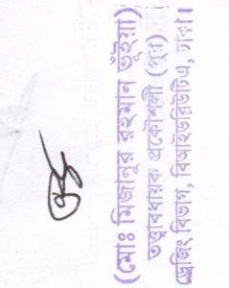 (মোঃ মিজানুর রহমান ভূঁইয়া)
তত্ত্বাবধায়ক প্রকৌশলী (পুর)
ড্রেজিং বিভাগ, বিআইডব্লিউটিএ, ঢাকা।